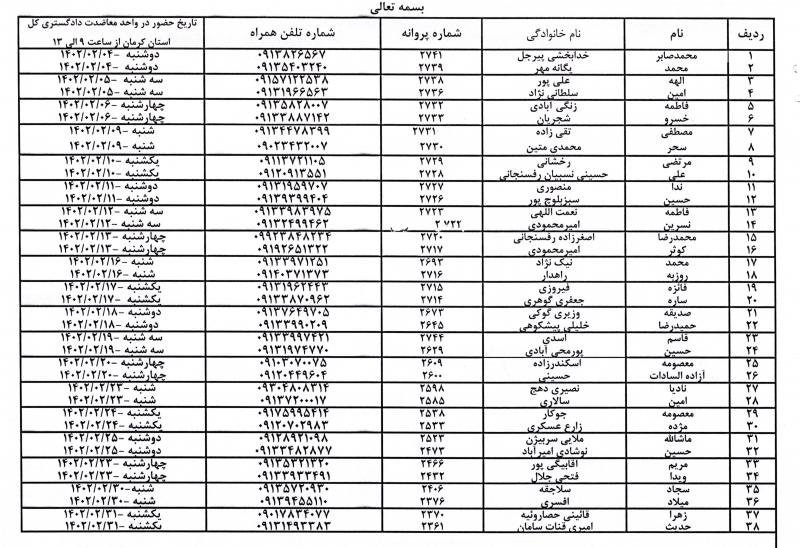 بسمه تعالی
ردیف نام نام خانوادگی شماره پروانه شماره تلفن همراه تاریخ حضور در واحد معاضدت دادگستری کل استان کرمان از ساعت ۹ الی ۱۳
۱ محمدصابر خدابخشی پیرجل ۲۷۴۱ ۰۹۱۳۸۲۶۵۶۷ دوشنبه -۱۴۰۲/۰۲/۰۴
۲ محمد یگانه مهر ۲۷۳۹ ۰۹۱۳۵۴۰۳۲۴۰ دوشنبه -۱۴۰۲/۰۲/۰۴
۳ الهه علی پور ۲۷۳۸ ۰۹۱۵۷۱۲۲۵۳۸ سه شنبه -۱۴۰۲/۰۲/۰۵
۴ امین سلطانی نژاد ۲۷۳۶ ۰۹۱۳۱۹۶۶۵۶۳ سه شنبه -۱۴۰۲/۰۲/۰۵
۵ فاطمه زنگی آبادی ۲۷۳۲ ۰۹۱۳۵۸۲۸۰۰۷ چهارشنبه -۱۴۰۲/۰۲/۰۶
۶ خسرو شجریان ۲۷۳۳ ۰۹۱۳۳۸۸۷۱۴۲ چهارشنبه -۱۴۰۲/۰۲/۰۶
۷ مصطفی تقی زاده ۲۷۳۱ ۰۹۱۳۴۴۷۸۳۹۹ شنبه -۱۴۰۲/۰۲/۰۹
۸ سحر محمدی متین ۲۷۳۰ ۰۹۰۲۳۴۳۲۰۰۷ شنبه -۱۴۰۲/۰۲/۰۹
۹ مرتضی رخشانی ۲۷۲۹ ۰۹۱۱۳۷۲۱۱۰۵ یکشنبه -۱۴۰۲/۰۲/۱۰
۱۰ علی حسینی نسبیان رفسنجانی ۲۷۲۸ ۰۹۱۲۰۹۱۳۵۵۱ یکشنبه -۱۴۰۲/۰۲/۱۰
۱۱ ندا منصوری ۲۷۲۷ ۰۹۱۳۱۹۵۹۷۰۷ دوشنبه -۱۴۰۲/۰۲/۱۱
۱۲ حسین سبزبلوچ پور ۲۷۲۶ ۰۹۱۳۹۳۹۹۴۰۴ دوشنبه -۱۴۰۲/۰۲/۱۱
۱۳ فاطمه نعمت اللهی ۲۷۲۳ ۰۹۱۳۳۹۸۳۹۷۵ سه شنبه -۱۴۰۲/۰۲/۱۲
۱۴ نسرین امیرمحمودی ۲۷۲۲ ۰۹۱۳۲۴۹۹۴۶۲ سه شنبه -۱۴۰۲/۰۲/۱۲
۱۵ محمدرضا اصغرزاده رفسنجانی ۲۷۲۰ ۰۹۹۲۳۸۴۸۲۳۴ چهارشنبه -۱۴۰۲/۰۲/۱۳
۱۶ کوثر امیرمحمودی ۲۷۱۷ ۰۹۱۹۲۶۵۱۳۲۲ چهارشنبه -۱۴۰۲/۰۲/۱۳
۱۷ محمد نیک نژاد ۲۶۹۳ ۰۹۱۳۳۹۷۱۲۵۱ شنبه -۱۴۰۲/۰۲/۱۶
۱۸ روزبه راهدار ۲۷۱۶ ۰۹۱۴۰۳۷۱۳۷۳ شنبه -۱۴۰۲/۰۲/۱۶
۱۹ فائزه فیروزی ۲۷۱۵ ۰۹۱۳۱۹۶۲۴۴۳ یکشنبه -۱۴۰۲/۰۲/۱۷
۲۰ ساره جعفری گوهری ۲۷۱۴ ۰۹۱۳۳۸۷۰۹۶۲ یکشنبه -۱۴۰۲/۰۲/۱۷
۲۱ صدیقه وزیری گوکی ۲۶۷۳ ۰۹۱۳۷۶۴۹۷۰۵ دوشنبه -۱۴۰۲/۰۲/۱۸
۲۲ حمیدرضا خلیلی پیشکوهی ۲۶۴۵ ۰۹۱۳۳۹۹۰۲۰۹ دوشنبه -۱۴۰۲/۰۲/۱۸
۲۳ قاسم اسدی ۲۷۴۴ ۰۹۱۳۳۹۹۷۴۲۱ سه شنبه -۱۴۰۲/۰۲/۱۹
۲۴ حسین پورمحی آبادی ۲۶۲۹ ۰۹۱۳۱۹۷۴۷۷۰ سه شنبه -۱۴۰۲/۰۲/۱۹
۲۵ معصومه اسکندرزاده ۲۶۰۹ ۰۹۱۰۳۰۷۰۰۷۵ چهارشنبه -۱۴۰۲/۰۲/۲۰
۲۶ آزاده السادات حسینی ۲۶۰۰ ۰۹۱۲۰۴۴۹۶۰۴ چهارشنبه -۱۴۰۲/۰۲/۲۰
۲۷ نادیا نصیری دهج ۲۵۹۸ ۰۹۳۰۴۸۰۸۳۱۴ شنبه -۱۴۰۲/۰۲/۲۳
۲۸ امین سالاری ۲۵۸۵ ۰۹۱۳۷۲۰۰۰۱۷ شنبه -۱۴۰۲/۰۲/۲۳
۲۹ معصومه جوکار ۲۵۳۸ ۰۹۱۷۵۹۹۵۴۱۴ یکشنبه -۱۴۰۲/۰۲/۲۴
۳۰ مژده زارع عسکری ۲۵۳۳ ۰۹۱۲۰۷۰۲۹۸۳ یکشنبه -۱۴۰۲/۰۲/۲۴
۳۱ ماشالله ملایی سربیژن ۲۵۲۳ ۰۹۱۲۸۹۲۱۰۹۸ دوشنبه -۱۴۰۲/۰۲/۲۵
۳۲ حسین نوشادی امیرآباد ۲۴۷۳ ۰۹۱۳۳۴۸۲۸۷۷ دوشنبه -۱۴۰۲/۰۲/۲۵
۳۳ مریم آقابیگی پور ۲۴۶۶ ۰۹۱۳۵۳۲۱۳۲۰ چهارشنبه -۱۴۰۲/۰۲/۲۳
۳۴ ویدا فتحی جلال ۲۴۳۲ ۰۹۱۳۳۹۳۳۴۹۱ چهارشنبه -۱۴۰۲/۰۲/۲۳
۳۵ سجاد سلاجقه ۲۴۰۶ ۰۹۱۳۵۷۲۰۹۳۰ شنبه -۱۴۰۲/۰۲/۳۰
۳۶ میلاد افسری ۲۳۷۶ ۰۹۱۳۹۴۵۵۱۱۰ شنبه -۱۴۰۲/۰۲/۳۰
۳۷ زهرا قائینی حصاروئیه ۲۳۷۰ ۰۹۰۱۷۸۳۴۰۷۷ یکشنبه -۱۴۰۲/۰۲/۳۱
۳۸ حدیث امیری قنات سامان ۲۳۶۱ ۰۹۱۳۱۴۹۳۳۸۳ یکشنبه -۱۴۰۲/۰۲/۳۱